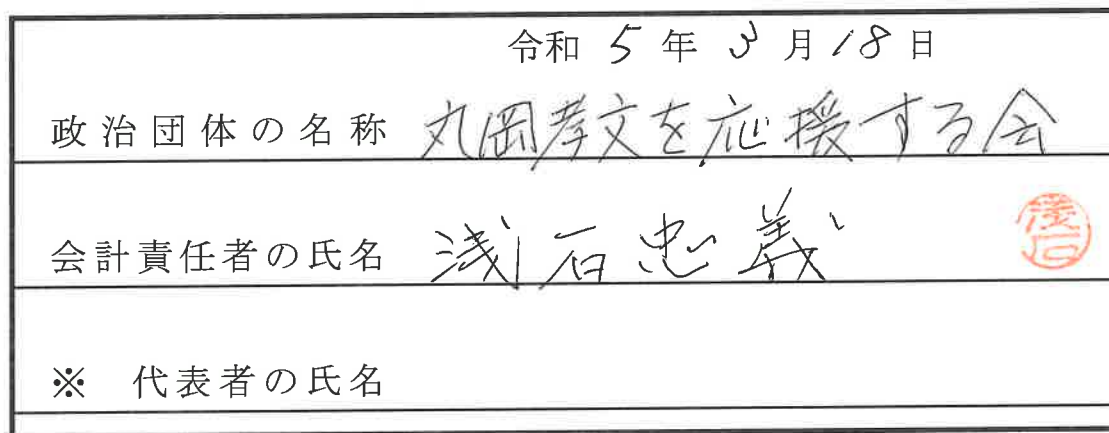 令和 5 年 3 月 18 日
政治団体の名称 丸岡孝文を応援する会
会計責任者の氏名 浅石忠義
浅石
※ 代表者の氏名